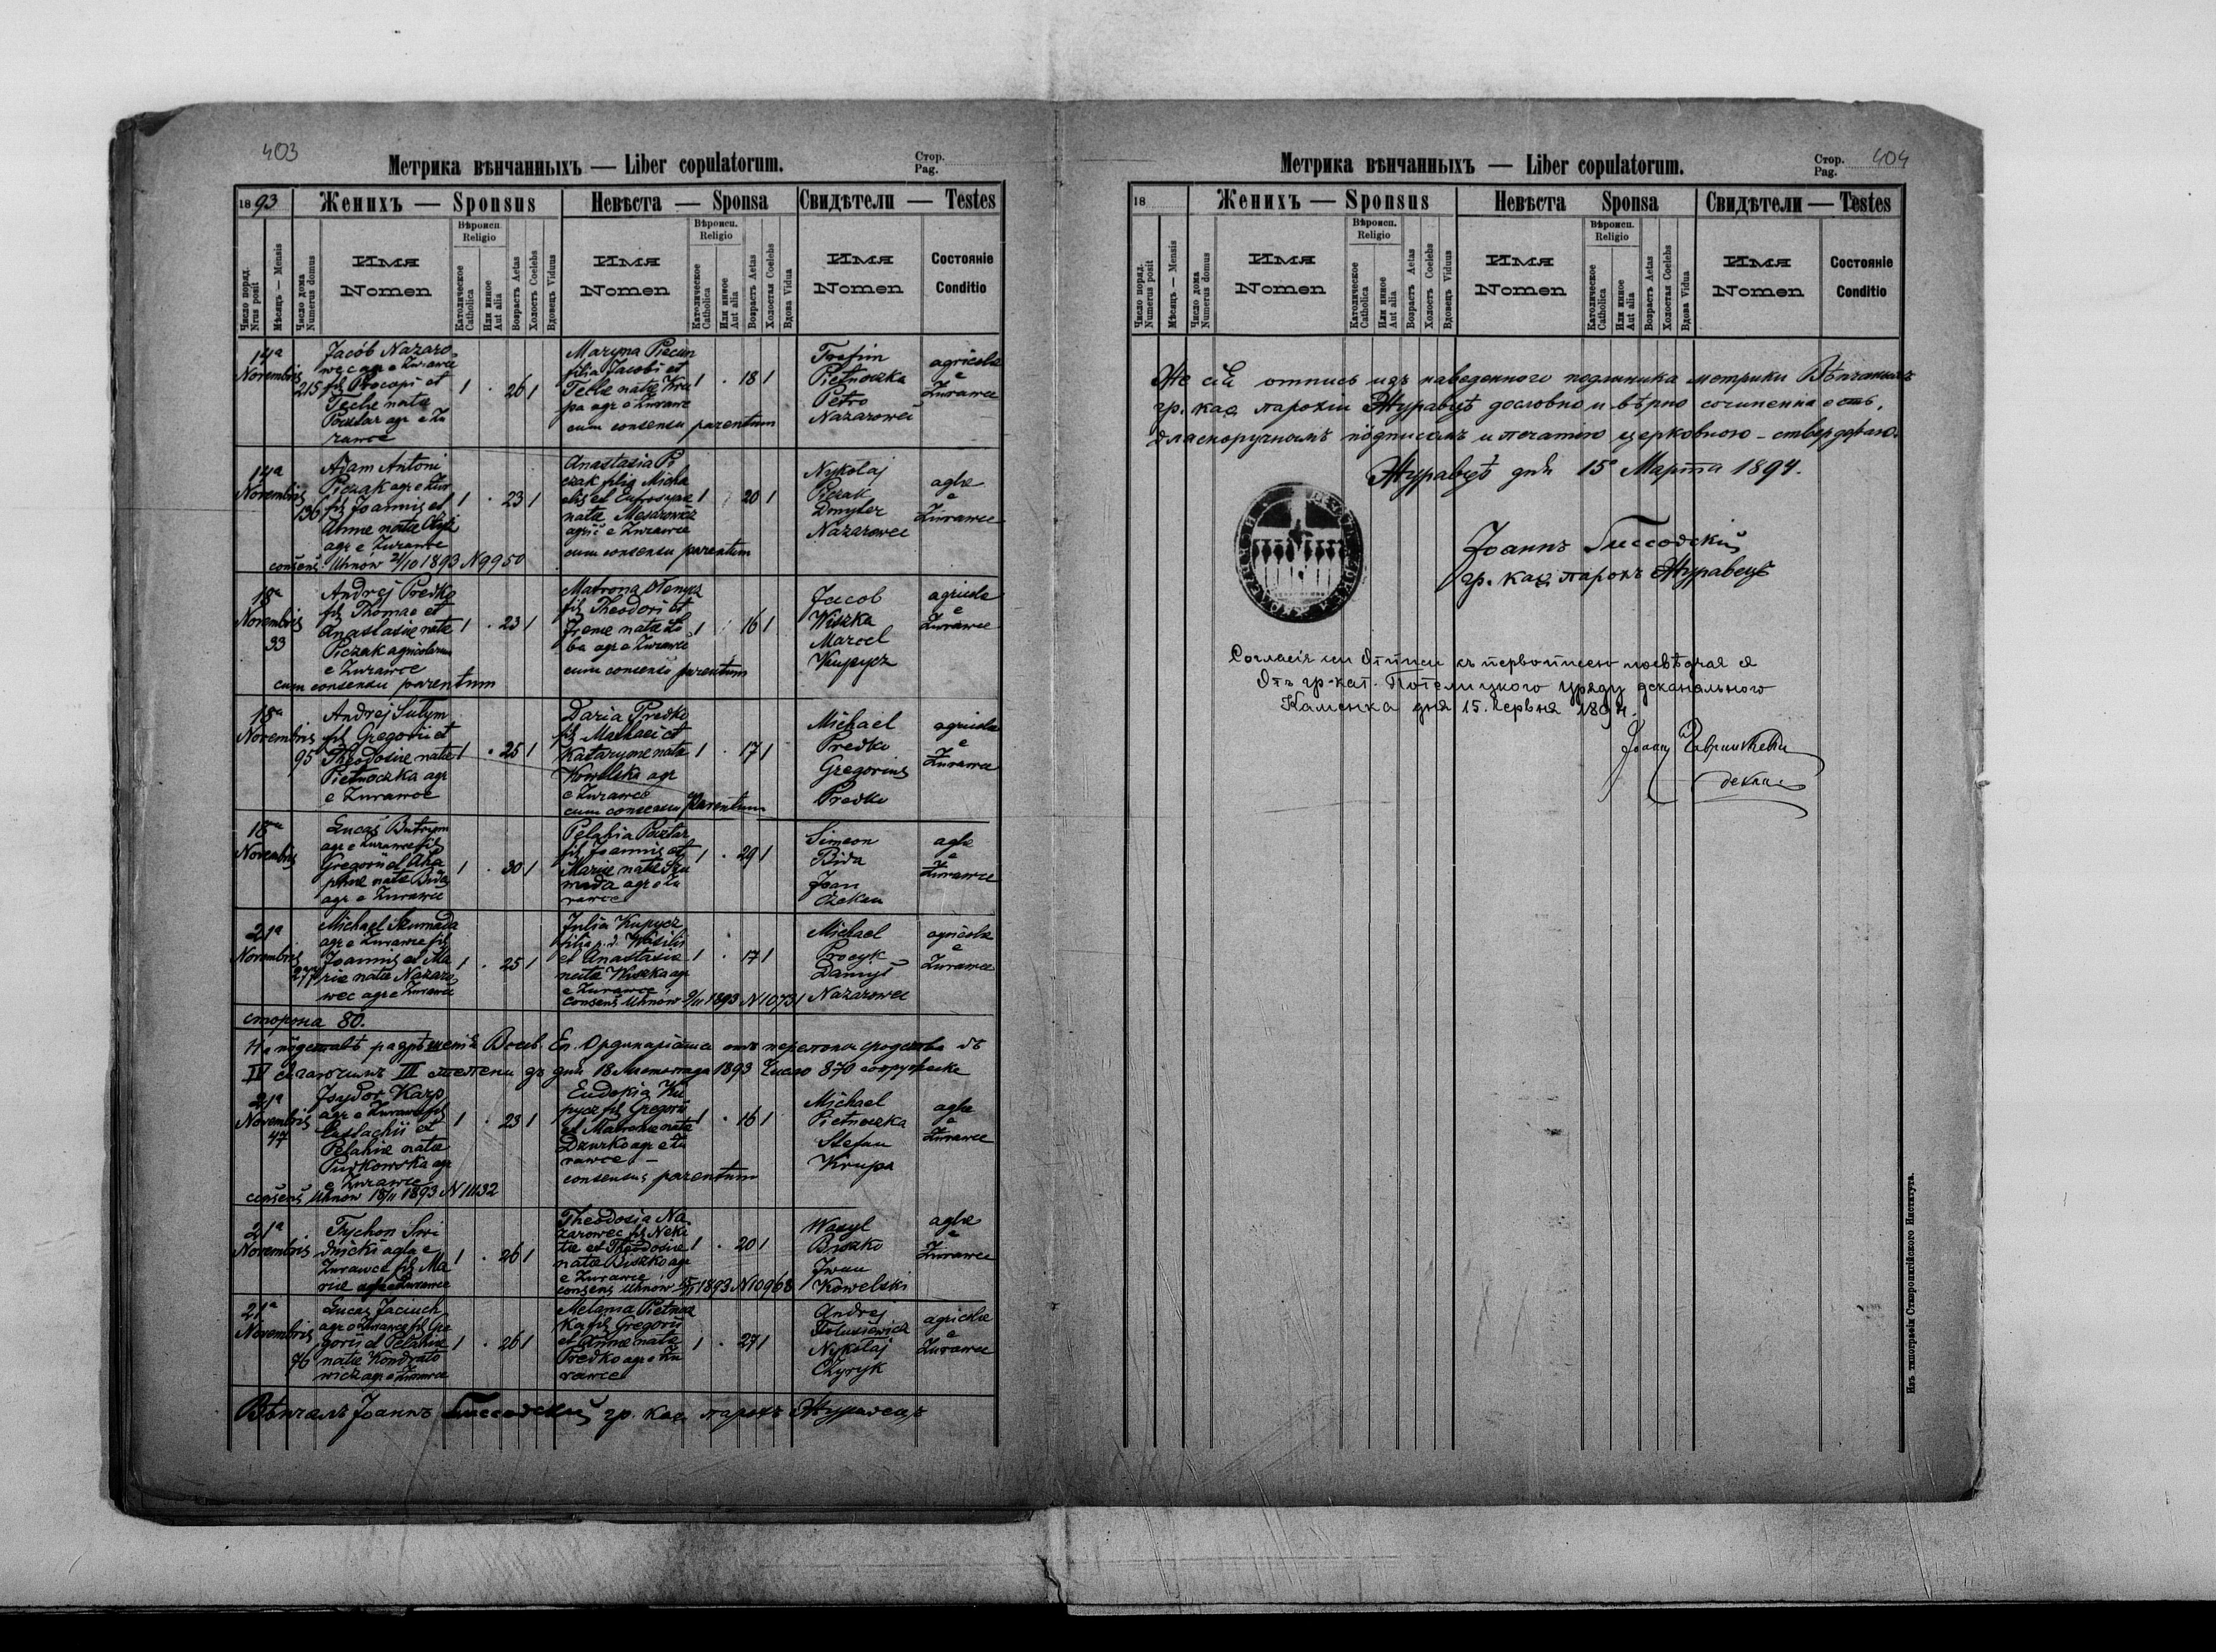 403
Метрика вѣнчанныхъ — Liber copulatorum.
Стор.
Pag.
18 93
Женихъ — Sponsus
Невѣста — Sponsa
Свидѣтели — Testes
Число поряд.
Nrus posit
Мѣсяцъ — Mensis
Число дома
Numerus domus
Имя
Nomen
Вѣроисп.
Religio
Католическое
Catholica
Или инное
Aut alia
Возрастъ Aetas
Холостъ Coelebs
Вдовецъ Viduus
Имя
Nomen
Вѣроисп.
Religio
Католическое
Catholica
Или инное
Aut alia
Возрастъ Aetas
Холостая Coelebs
Вдова Vidua
Имя
Nomen
Состояніе
Conditio
14a
Novembris
215
Jacób Nazaro
wec agr e Zurawce
fil Procopi et
Teclæ natæ
Pocztar agr e Zu
rawce
1 . 26 1
Maryna Piecun
filia Jacobi et
Teclæ natæ Kru
pa agr e Zurawce
cum consensu parentum
1 . 18 1
Trofim
Pietnoczka
Petro
Nazarowec
agricolæ
e
Zurawce
14a
Novembris
136
Adam Antoni
Piczak agr e Zur
fil Joannis et
Annæ natæ
agr e Zurawce
consens. Uhnow 21/10 1893 N 9950
1 . 23 1
Anastasia Pi
czak filia Micha
elis et Eufrosynæ
natæ
agrii e Zurawce
cum consensu parentum
1 20 1
Nykołaj
Piczak
Dmyter
Nazarowec
aglæ
e
Zurawce
18a
Novembris
33
Andrej Predko
fil Thomae et
Anastasiæ natæ
Piczak agricolarum
e Zurawce
cum consensu parentum
1 . 23 1
Matrona
fil Theodori et
Irenæ natæ Zo
ba agr e Zurawce
cum consensu parentum
1 16 1
Jacob
Wiszka
Marcel
Kupycz
agricolæ
e
Zurawce
18a
Novembris
95
Andrej Sutym
fil Gregorii et
Theodosiæ natæ
Pietnoczka agr
e Zurawce
1 . 25 1
Daria Predko
fil Mathaei et
Katarynæ natæ
Kowelska agr
e Zurawce
cum consensu parentum
1 . 17 1
Michael
Predko
Gregorius
Predko
agricolæ
e
Zurawce
18a
Novembris
Lucas Butrym
agr e Zurawce fil
Gregorii et Aha
phiæ natæ Bida
agr e Zurawce
1 . 30 1
Pelahia Pocztar
fil Joannis et
Mariæ natæ Szu
mada agr e Zu
rawce
1 . 29 1
Simeon
Bida
Joan
aglæ
e
Zurawce
21a
Novembris
277
Michael Szumada
agr e Zurawce fil
Joannis et Ma
riæ natæ Nazaro
wec agr e Zurawce
1 . 25 1
Julia Kupycz
filia p. d. Wasilii
et Anastasiæ
natæ Wiszka agr
e Zurawce
consens Uhnow 9/11 1893 N 10731
1 . 17 1
Michael
Procyk
Danyło
Nazarowec
agricolæ
e
Zurawce
сторона 80.
IV III степени дня 18 Листопада 1893 Число 870
21a
Novembris
47
Isydor Karp
agr e Zurawce fil
Eustachii et
Pelahiæ natæ
Pudkowska agr
e Zurawce
consens Uhnow 18/11 1893 N 11132
1 . 23 1
Eudokia Ku
pycz fil Gregorii
et Matronæ natæ
Dziurko agr e Zu
rawce —
consensus parentum
1 . 16 1
Michael
Pietnoczka
Stefan
Krupa
aglæ
e
Zurawce
21a
Novembris
Tychon Swi
dnicki agla e
Zurawce fil Ma
riæ agr e Zurawce
1 . 26 1
Theodosia Na
zarowec fil Neki
tæ et Theodosiæ
natæ Biszko agr
e Zurawce
consens Uhnow 1893 N 10968
1 . 20 1
Wasyl
Biszko
Iwan
Kowelski
aglæ
e
Zurawce
21a
Novembris
76
Lucas Jaciuch
agr e Zurawce fil Gre
gorii et Pelahiæ
natæ Kondrato
wicz agr e Zurawce
1 . 26 1
Melania Pietnocz
ka fil Gregorii
et Annæ natæ
Predko agr e Zu
rawce
1 . 27 1
Andrej
Nykołaj
Czyryk
agricolæ
e
Zurawce
Вѣнчалъ Іоаннъ гр. каѳ. парохъ Журавецъ
404
Метрика вѣнчанныхъ — Liber copulatorum.
Стор.
Pag.
18
Женихъ — Sponsus
Невѣста Sponsa
Свидѣтели — Testes
Число поряд.
Numerus posit
Мѣсяцъ — Mensis
Число дома
Numerus domus
Имя
Nomen
Вѣроисп.
Religio
Католическое
Catholica
Или инное
Aut alia
Возрастъ Aetas
Холостъ Coelebs
Вдовецъ Viduus
Имя
Nomen
Вѣроисп.
Religio
Католическое
Catholica
Или инное
Aut alia
Возрастъ Aetas
Холостая Coelebs
Вдова Vidua
Имя
Nomen
Состояніе
Conditio
Же сей отпись изъ наведенного подлинника метрики Вѣнчанныхъ
гр. каѳ парохіи Журавцѣ дословно и вѣрно сочиненна есть,
подписомъ и печатію церковною — стверджаю.
Журавцѣ дня 15 Марта 1894.
Іоаннъ
гр. каѳ. парохъ Журавецъ
Согласіе сеи отписи къ первописею посвѣдчая
Отъ гр-кат. Потелицкого уряду деканального
Каменка дня 15. Червня 1894.
Іоаннъ
декан
Изъ типографіи Ставропигійского Института.